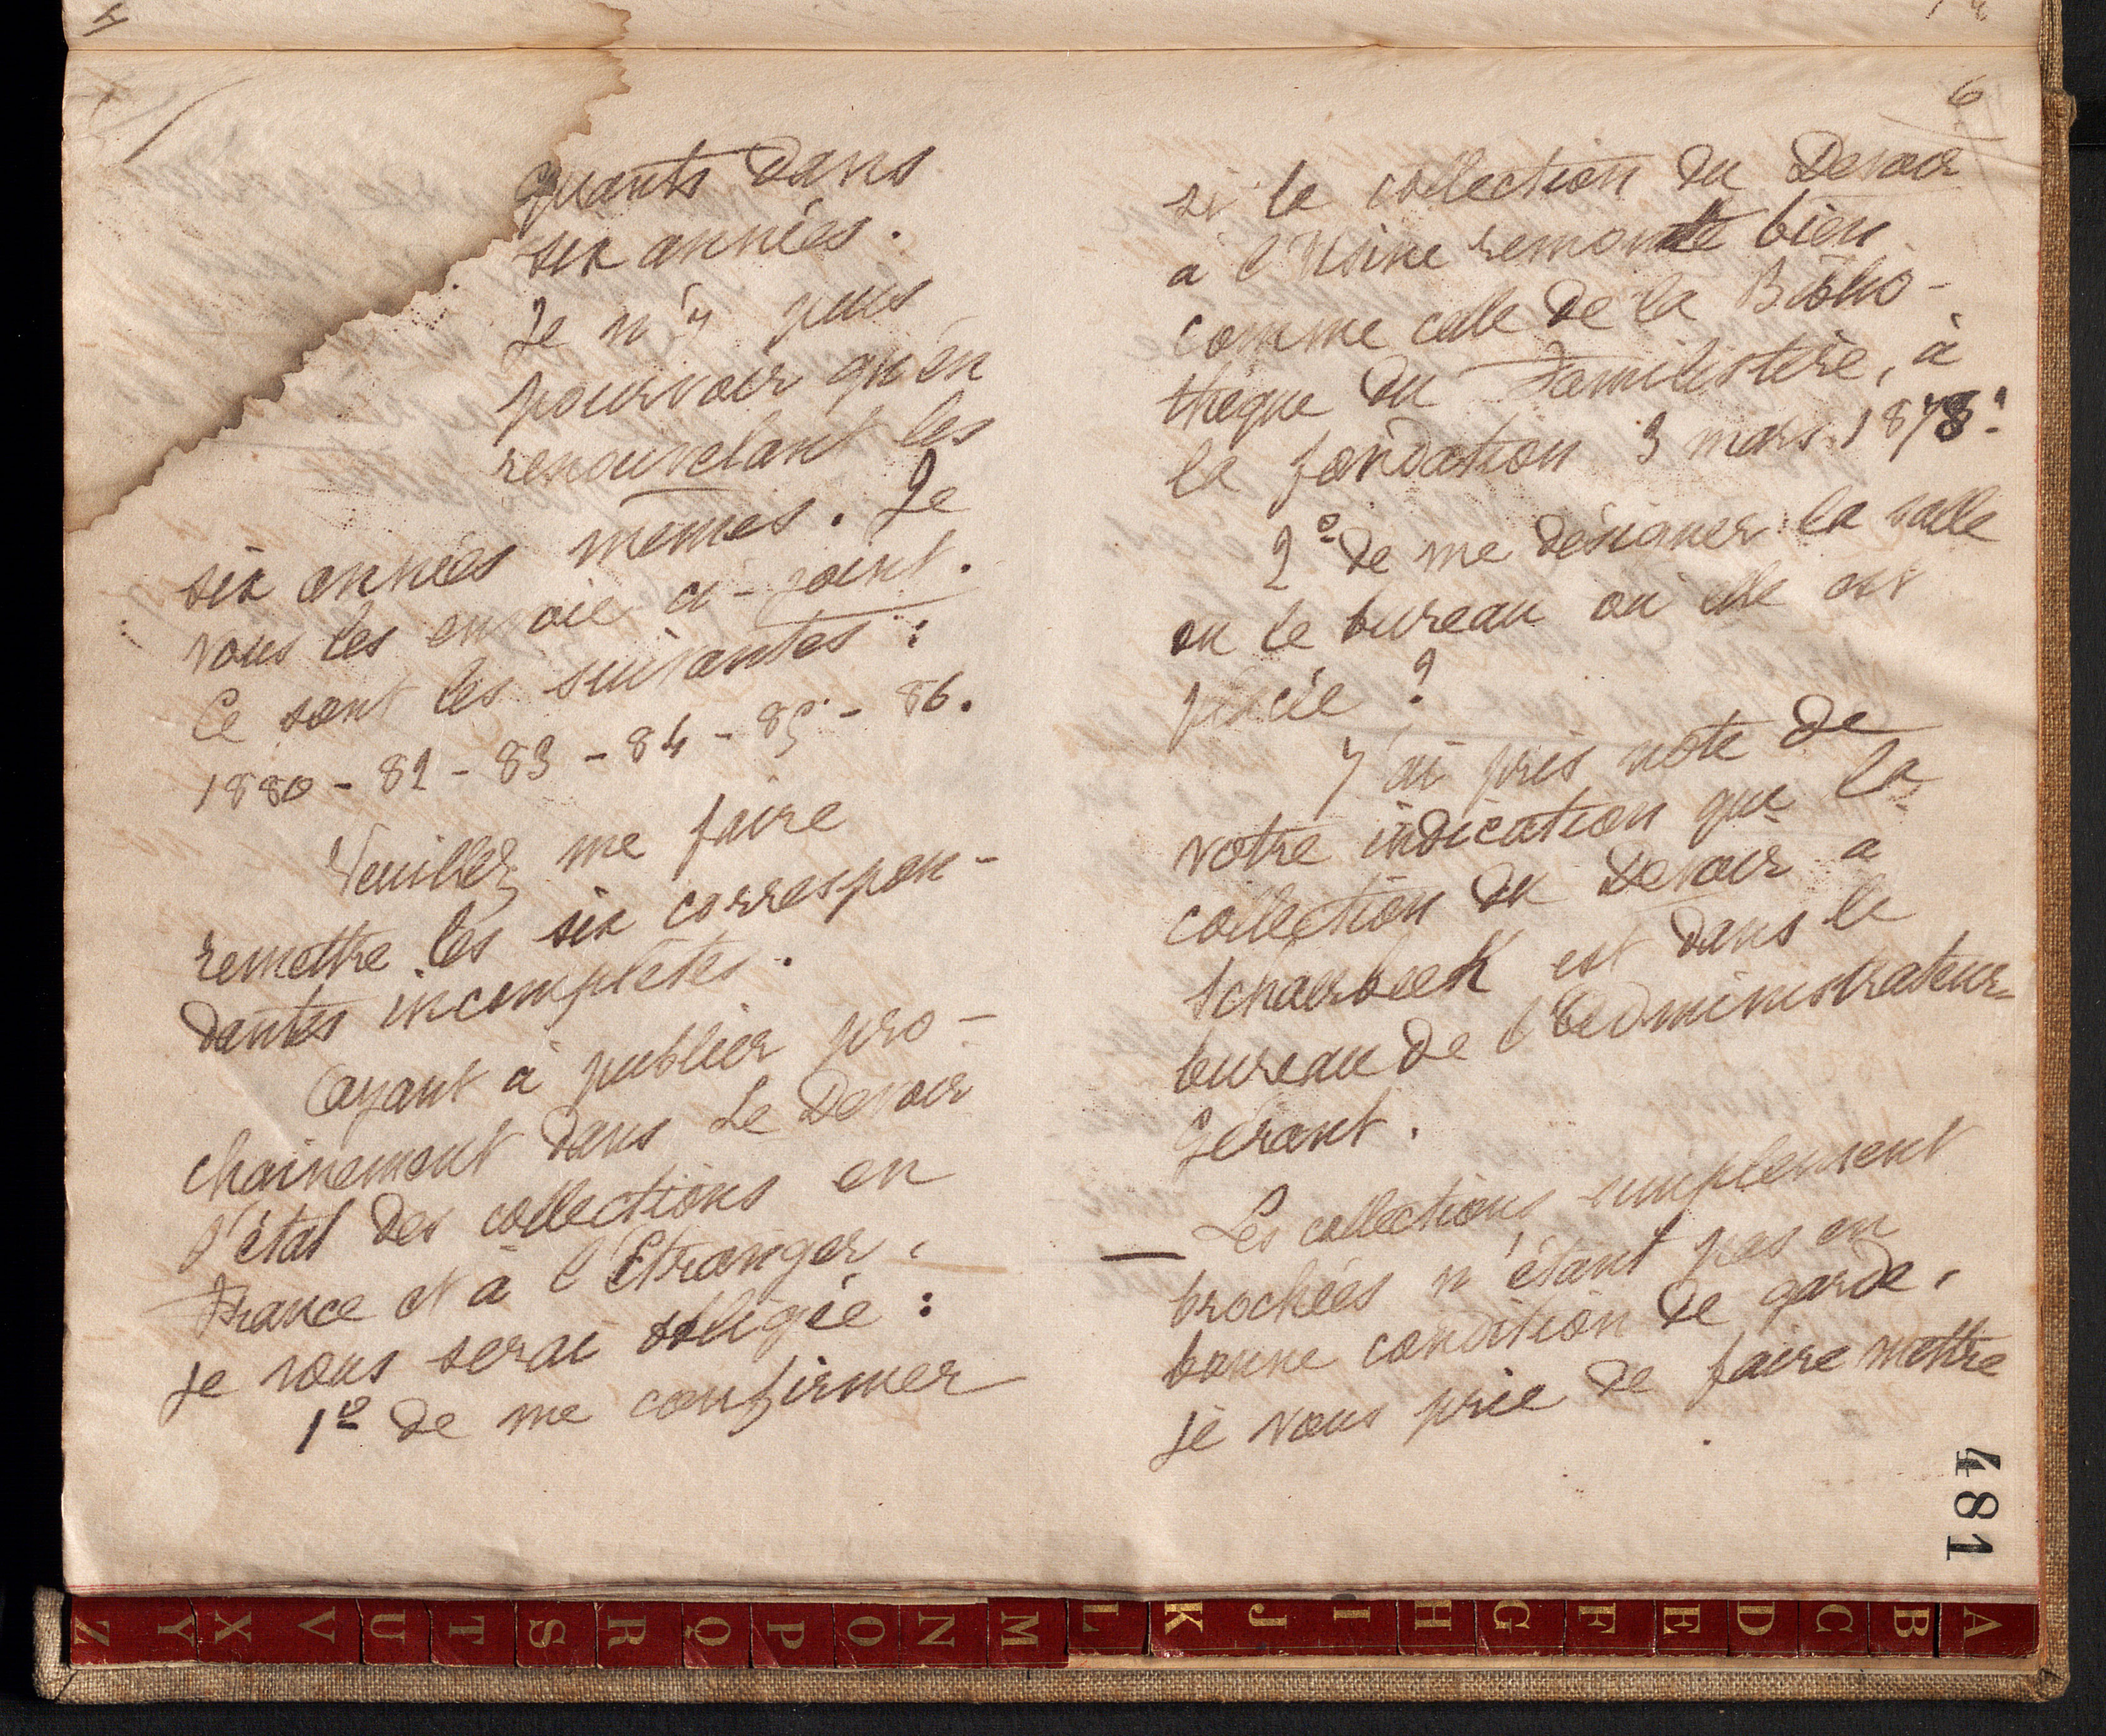 quants dans
six années.
Je n'y puis
pourvoir qu'en
renouvelant les
six années mêmes. Je
vous les envoie ci-joint.
Ce sont les suivantes :
1880 - 82 - 83 - 84 - 85 - 86.
Veuillez me faire
remettre les six correspon-
dantes incomplètes.
Ayant à publier pro-
chainement dans Le Devoir
l'état des collections en
France et à l'Etranger,
je vous serai obligée :
1º de me confirmer
6
si la collection du Devoir
à l'Usine remonte bien
comme celle de la Biblio-
thèque du Familistère, à
la fondation 3 mars 1878 !
2º de me désigner la salle
ou le bureau où elle est
placée ?
J'ai pris note de
votre indication que la
collection du Devoir à
Schaerbeek est dans le
bureau de l'Administrateur-
Gérant.
Les collections simplement
brochées n'étant pas en
bonne condition de garde,
je vous prie de faire mettre
481
Z Y X V U T S R Q P O N M L K J I H G F E D C B A